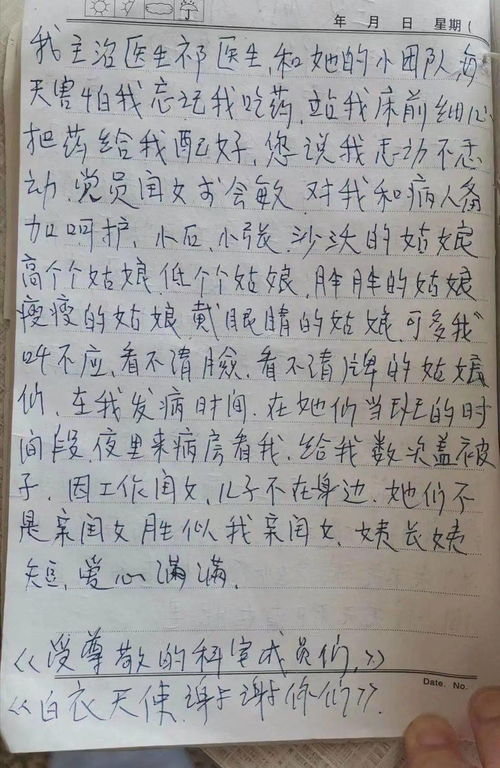 年 月 日 星期(
我主治医生祁医生,和她的小团队,每
天害怕我忘记我吃药,站我床前细心
把药给我配好,您说我感动不感
动,党员闺女 对我和病人备
加呵护,小石,小张,沙沃的姑娘
高个个姑娘,低个个姑娘,胖胖的姑娘
瘦瘦的姑娘 戴眼睛的姑娘,可多我
叫不应,看不清脸,看不清牌的姑娘
们,在我发病时间,在她们当班的时
间段,夜里来病房看我,给我数次盖被
子,因工作闺女,儿子不在身边,她们不
是亲闺女胜似我亲闺女,姨长姨
短,爱心满满,
<<受尊敬的科室成员们,>>
Date. No.
<<白衣天使,谢谢你们>>.